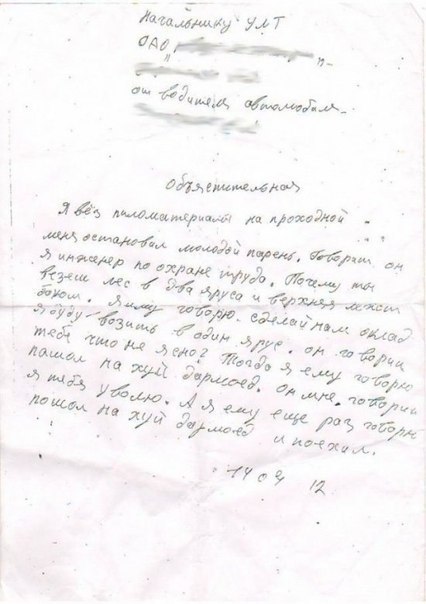 Начальнику УМТ
ОАО
"
от водителя автомобиля
Объяснительная
Я вёз пиломатериалы на проходной
меня остановил молодой парень. Говорит он
я инженер по охране труда. Почему ты
везеш лес в два яруса и верхняя лежит
боком. Я ему говорю сделай нам оклад
я буду возить в один ярус. он говорит
тебе что не ясно? Тогда я ему говорю
пашол на хуй дармоед. он мне говорит
я тебя уволю. А я ему еще раз говорю
пошол на хуй дармоед и поехал.
14 04 12